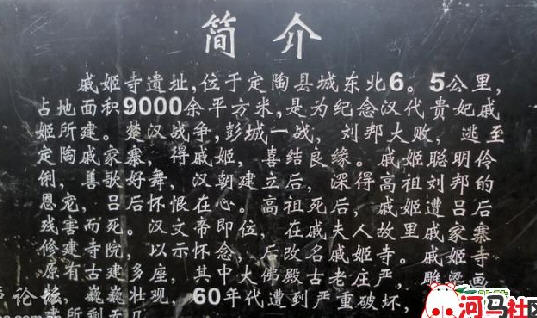 简介
戚姬寺遗址,位于定陶县城东北6。5公里,
占地面积9000余平方米,是为纪念汉代贵妃戚
姬所建。楚汉战争,彭城一战,刘邦大败,逃至
定陶戚家寨,得戚姬,喜结良缘。戚姬聪明伶
俐,善歌好舞,汉朝建立后,深得高祖刘邦的
恩宠,吕后怀恨在心。高祖死后,戚姬遭吕后
残害而死。汉文帝即位,在戚夫人故里戚家寨
修建寺院,以示怀念,后改名戚姬寺。戚姬寺
原有古建多座,其中大佛殿古老庄严,雕梁画
巍巍壮观,60年代遭到严重破坏,
论坛
河马社区